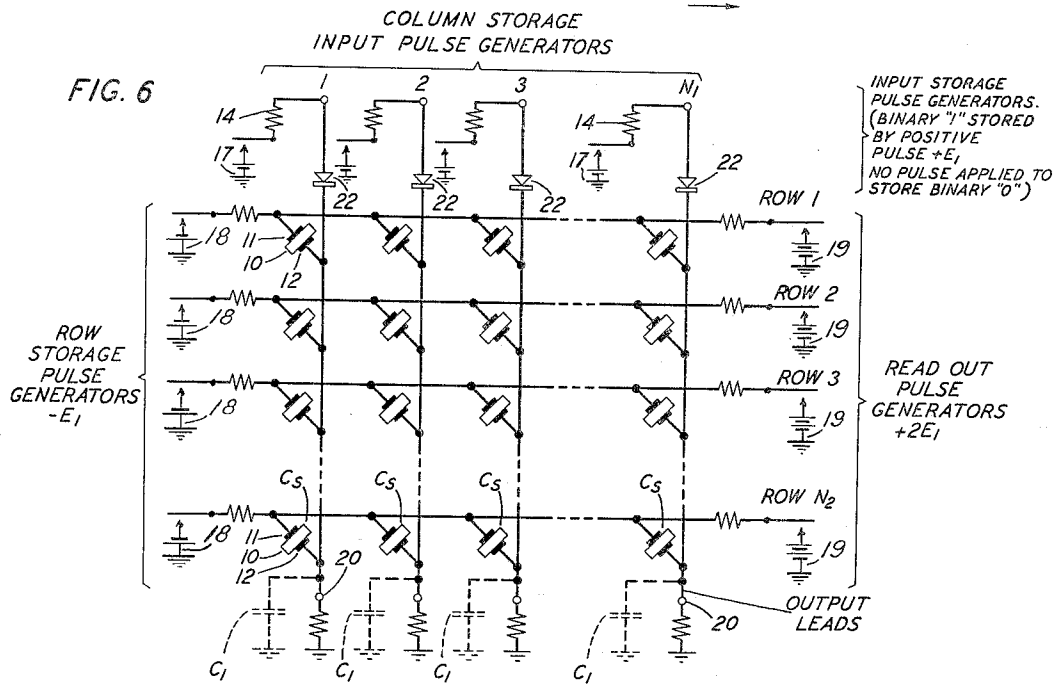 COLUMN STORAGE
INPUT PULSE GENERATORS
FIG. 6
1 2 3 N1
INPUT STORAGE
PULSE GENERATORS.
(BINARY "1" STORED
BY POSITIVE
PULSE +E1
NO PULSE APPLIED TO
STORE BINARY "0")
14 14
17 17
22 22 22 22
ROW 1
18 11 10 12 19
ROW 2
18 19
ROW
STORAGE
PULSE
GENERATORS
-E1
ROW 3
18 19
READ OUT
PULSE
GENERATORS
+2E1
CS CS CS CS
ROW N2
18 11 10 12 19
20 20
OUTPUT
LEADS
C1 C1 C1 C1